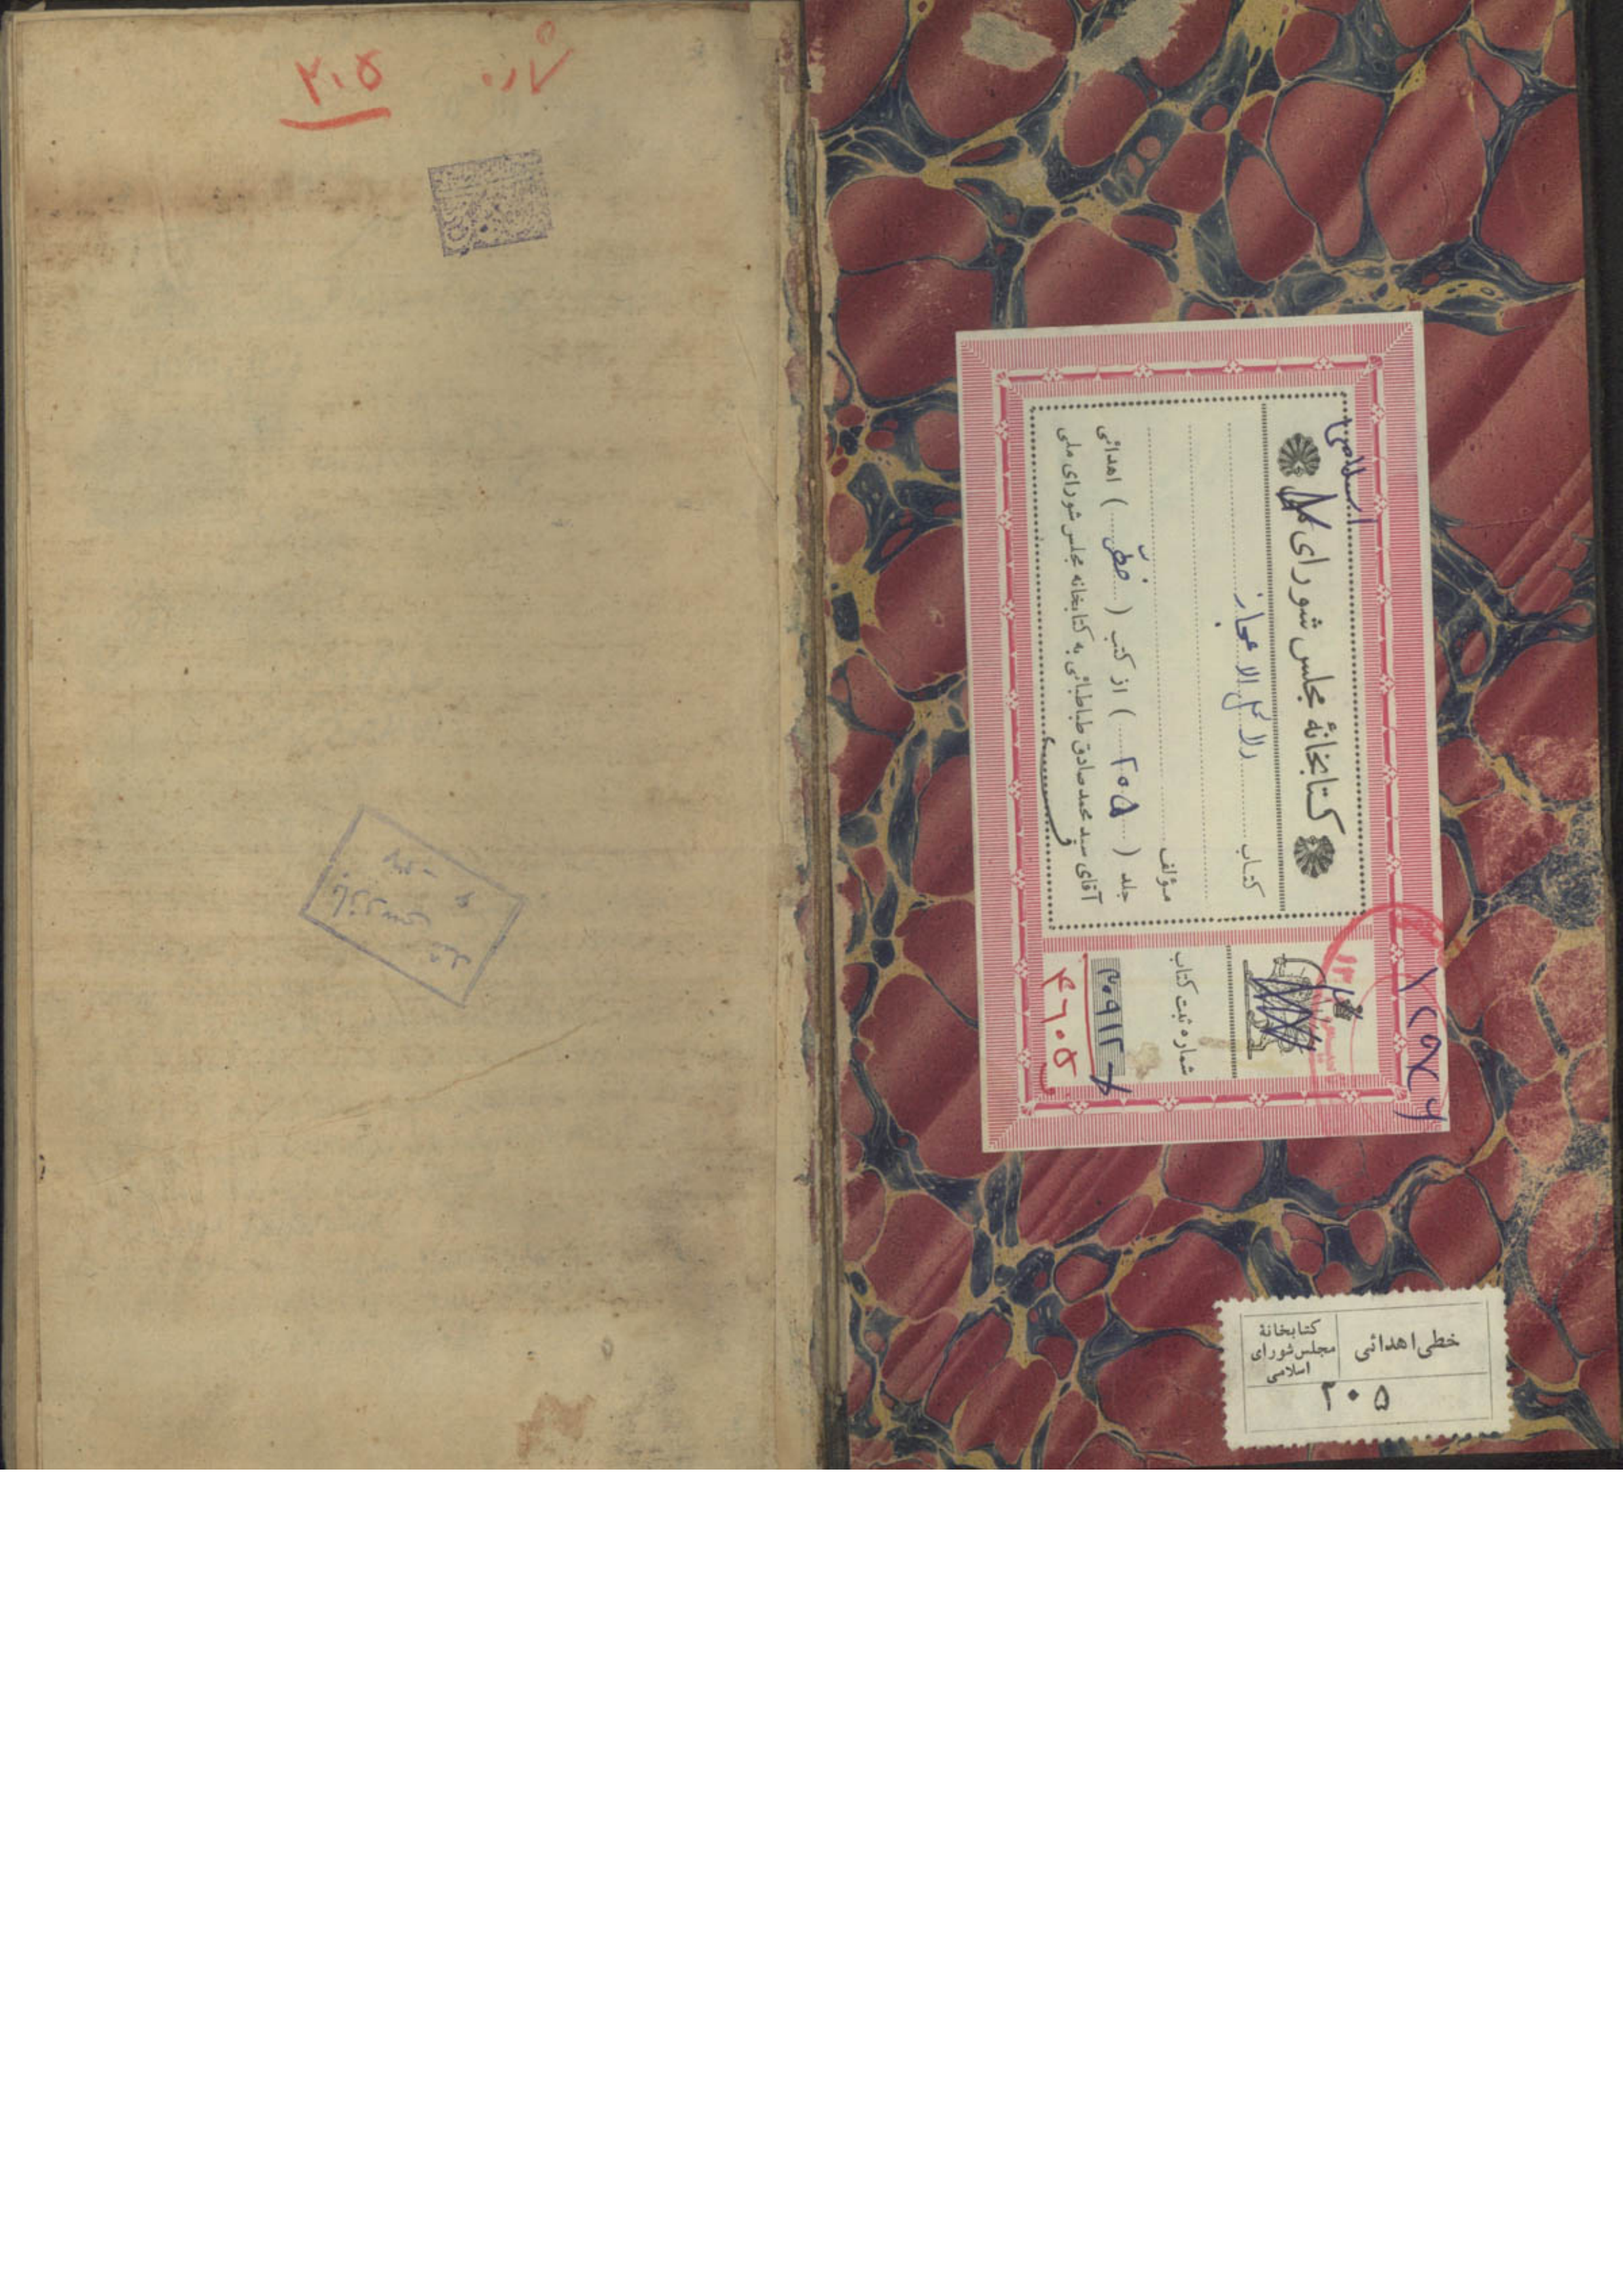 شماره ۲۰۵
اسلامی
کتابخانهٔ مجلس شورای
کتاب دلائل الاعجاز
مؤلف
جلد ( ۲۰۵ ) از کتب ( خطی ) اهدائی
آقای سید محمد صادق طباطبائی به کتابخانه مجلس شورای ملی
شماره ثبت کتاب
۲۰۹۱۲
۴۶۰۵
خطی اهدائی
کتابخانهٔ
مجلس شورای
اسلامی
۲۰۵